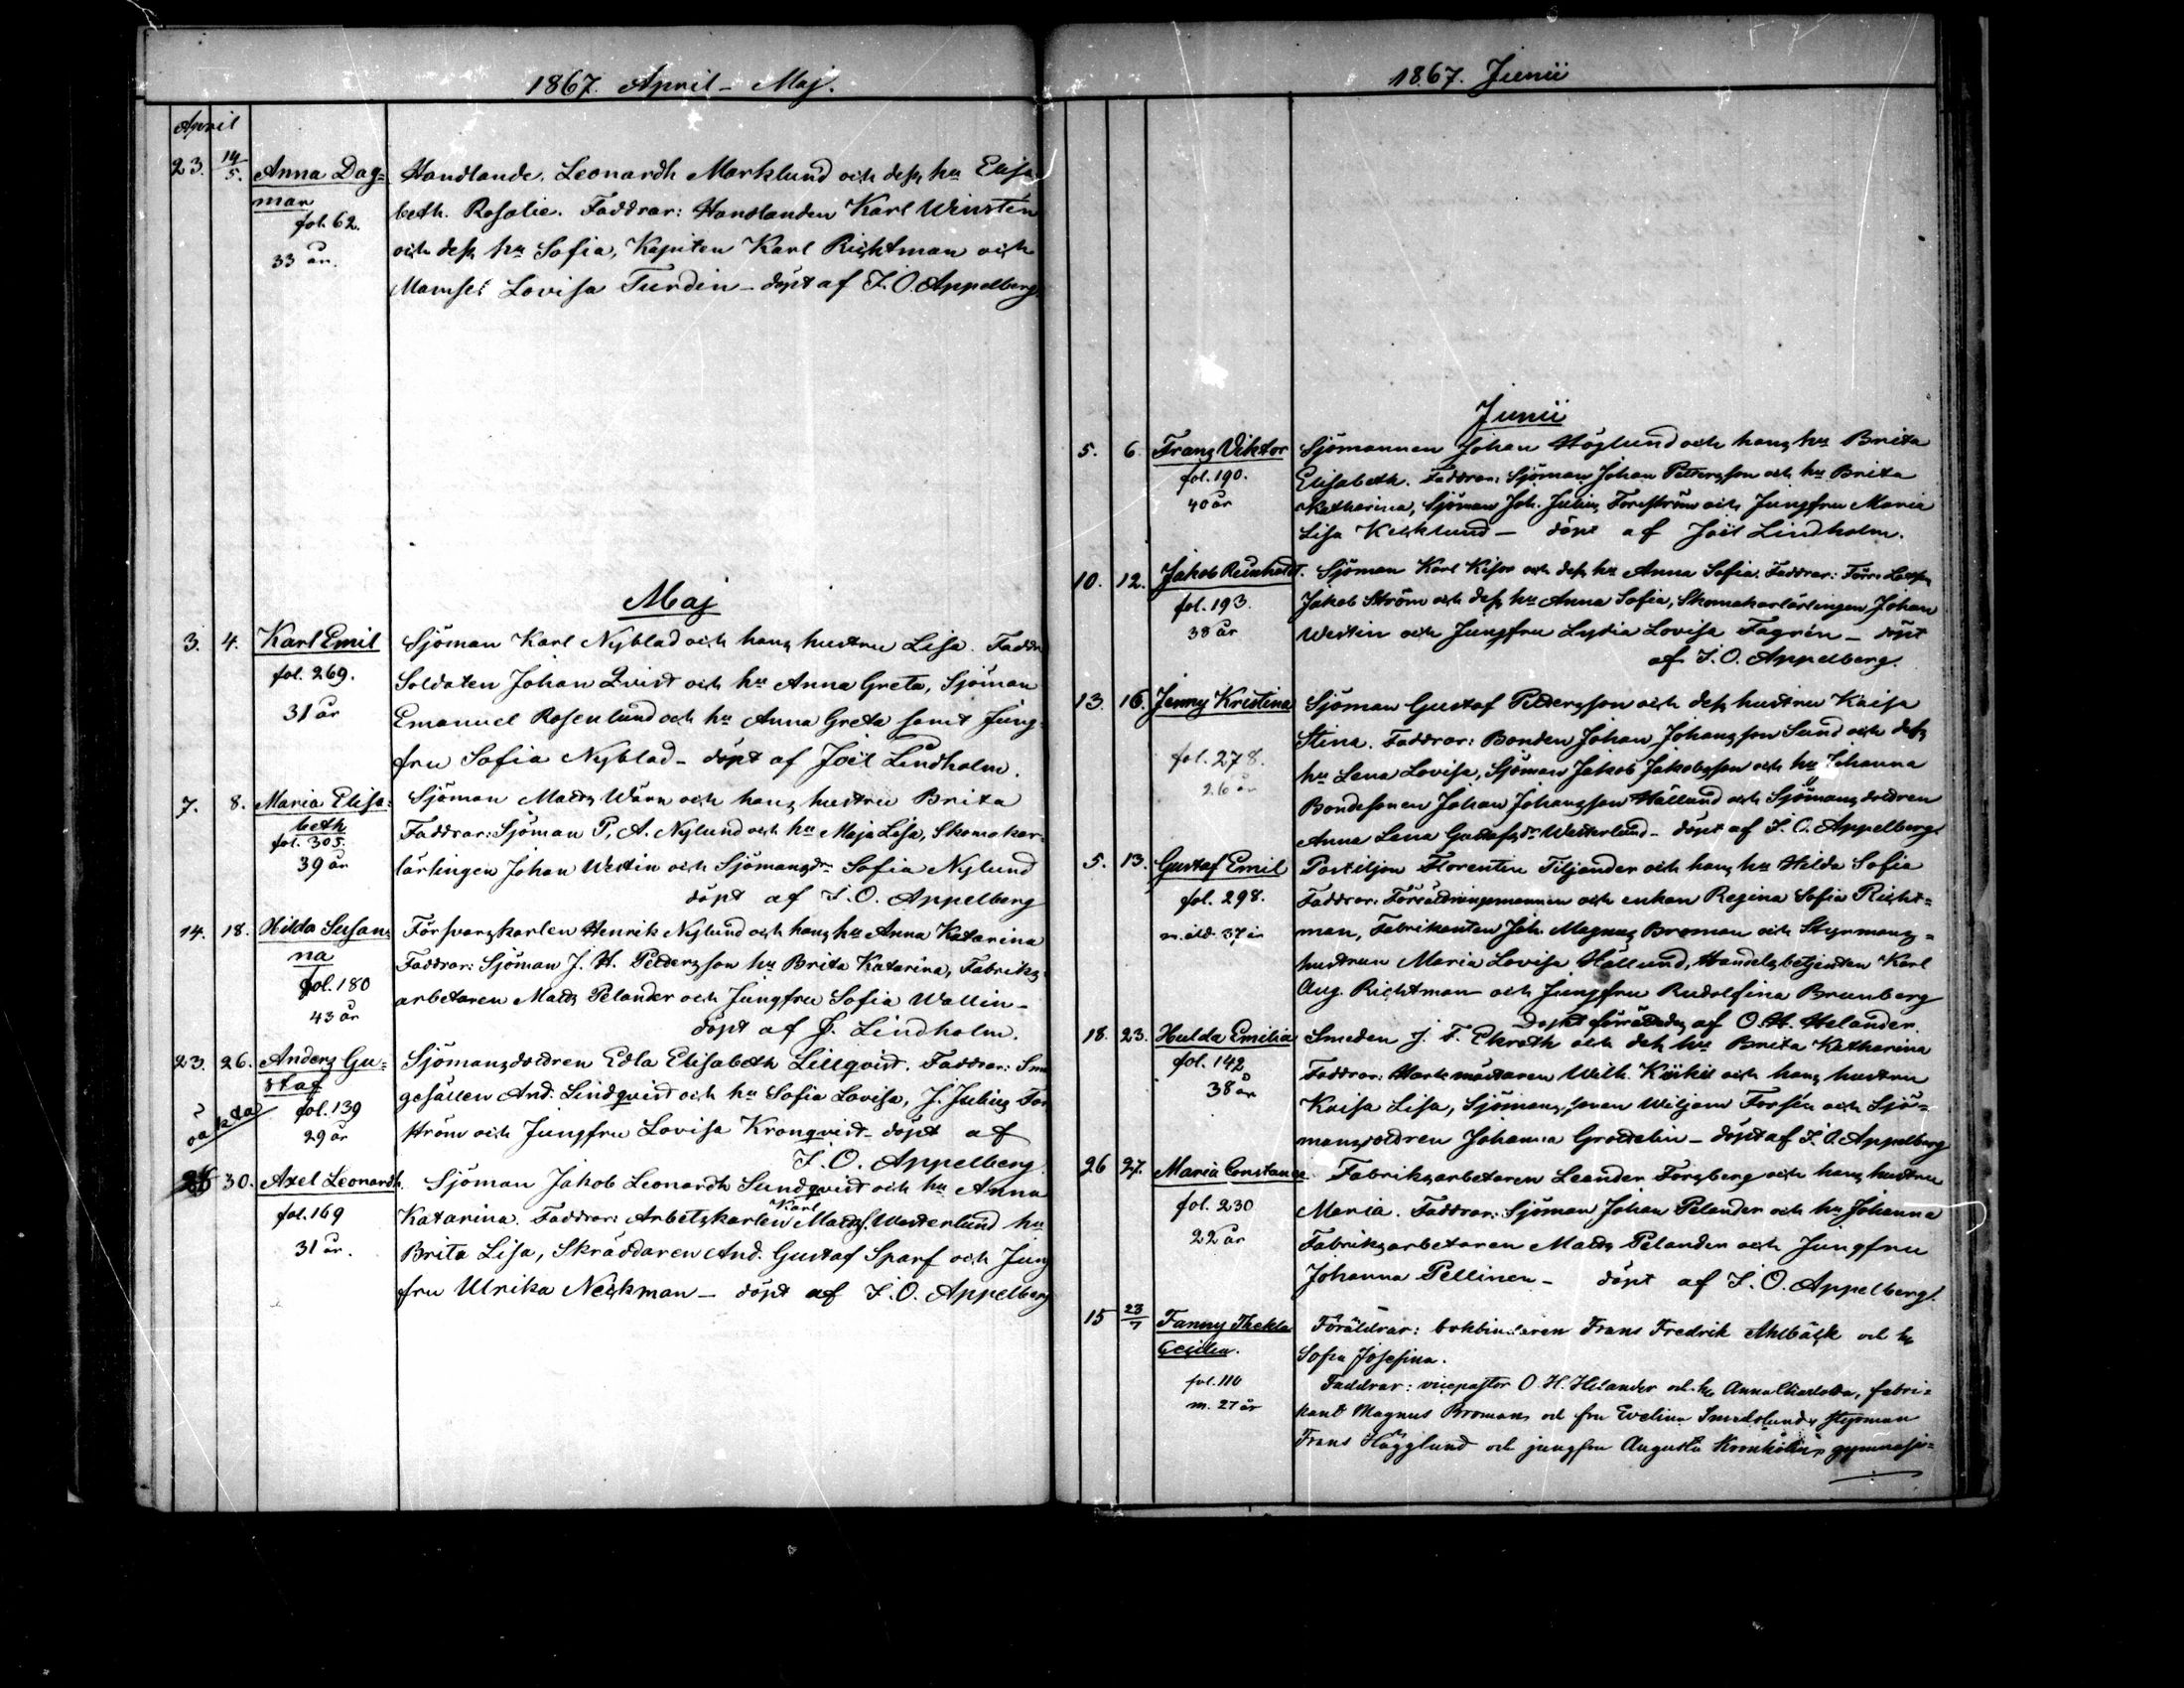 1867. April - Maj.
April
23. 14/5. Anna Dag= Handlande. Leonardh Marklund och dess hu Elisa
mar beth. Rosalie. Faddrar: Handlanden Karl Winsten
fol. 62. och dess hu Sofia, Kapiten Karl Richtman och
33 år. Mamsel Lovisa Turdin - döpt af J. O. Appelberg.
Maj
3. 4. Karl Emil Sjöman Karl Nyblad och hans hustru Lisa. Faddr
fol. 269. Soldaten Johan Qvist och hu Anna Greta, Sjöman
31 år Emanuel Rosenlund och hu Anna Greta samt Jung-
fru Sofia Nyblad - döpt af Joel Lindholm.
7. 8. Maria Elisa= Sjöman Matts Wärn och hans hustru Brita
beth Faddrar: Sjöman P. A. Nylund och hu Maja Lisa, Skomakar-
fol. 305.
39 år lärlingen Johan Westin och Sjömansdr Sofia Nylund
döpt af J. O. Appelberg
14. 18. Hilda Susan= Försvarskarlen Henrik Nylund och hans hu Anna Katarina
na Faddrar: Sjöman J. H. Pettersson hu Brita Katarina, Fabriks-
fol. 180 arbetaren Matts Pelander och Jungfru Sofia Wallin -
43 år döpt af J. Lindholm.
23. 26. Anders Gu= Sjömansdottren Edla Elisabeth Lillqvist. Faddrar: Sme
staf gesällen And. Lindqvist och hu Sofia Lovisa, J. Julius For
oäkta fol. 139 ström och Jungfru Lovisa Kronqvist - döpt af
29 år J. O. Appelberg.
30. Axel Leonardh. Sjöman Jakob Leonardh Sundqvist och hu Anna
fol. 169 Katarina. Faddrar: Arbetskarlen Karl Matts. Westerlund hu
31 år. Brita Lisa, Skräddaren And. Gustaf Sparf och Jung
fru Ulrika Neckman - döpt af J. O. Appelberg
1867. Junii
Junii
5. 6 Franz Viktor Sjömannen Johan Höglund och hans hu Brita
fol. 190. Elisabeth. Faddrar: Sjöman Johan Pettersson och hu Brita
40 år Katharina, Sjöman Joh. Julius Forsström och Jungfru Maria
Lisa Kecklund - döpt af Joel Lindholm.
10. 12. Jakob Reinholdt. Sjöman Karl Kisor och dess hu Anna Sofia. Faddrar:
fol. 193. Jakob Ström och dess hu Anna Sofia, Skomakarlärlingen Johan
38 år Westin och Jungfru Lydia Lovisa Fagrén - döpt
af J. O. Appelberg.
13. 16. Jenny Kristina Sjöman Gustaf Pettersson och dess hustru Kaisa
Stina. Faddrar: Bonden Johan Johansson Sund och dess
fol. 278. hu Lena Lovisa, Sjöman Jakob Jakobsson och hu Johanna
26 år Bondesonen Johan Johansson Hällund och Sjömansdottren
Anna Lena Gustafsdr Westerlund - döpt af J. O. Appelberg.
5. 13. Gustaf Emil Postiljon Florentin Tiljander och hans hu Hilda Sofia
fol. 298. Faddrar: Förvaltningsmannen och enkan Regina Sofia Richt=
m. åld. 37 år man, Fabrikanten Joh. Magnus Broman och Styrmans=
hustrun Maria Lovisa Hällund, Handelsbetjenten Karl
Aug. Richtman och Jungfru Rudolfina Brunberg
Dopet förrättades af O. H. Helander.
18. 23. Hulda Emilia Smeden J. F. Ekroth och dess hu Brita Katharina
fol. 142 Faddrar: Verkmästaren Wilh. Kiikil och hans hustru
38 år Kaisa Lisa, Sjömanssonen Wiljam Forsén och Sjö=
mansdottren Johanna Grottelin - döpt af J. O. Appelberg
26 27. Maria Constance Fabriksarbetaren Leander Forsberg och hans hustru
fol. 230 Maria. Faddrar: Sjöman Johan Pelander och hu Johanna
22 år Fabriksarbetaren Matts Pelander och Jungfru
Johanna Pellinen - döpt af J. O. Appelberg.
15 23/7 Fanny Thekla Föräldrar: bokbindaren Frans Fredrik Ahlbäck och h.
Cecilia. Sofia Josefina.
fol. 110 Faddrar: vicepastor O. H. Helander och h. Anna Charlotta, fabri=
m. 27 år kant Magnus Broman och fru Evelina Smedslund, styrman
Frans Hägglund och jungfru Augusta gymnasi=